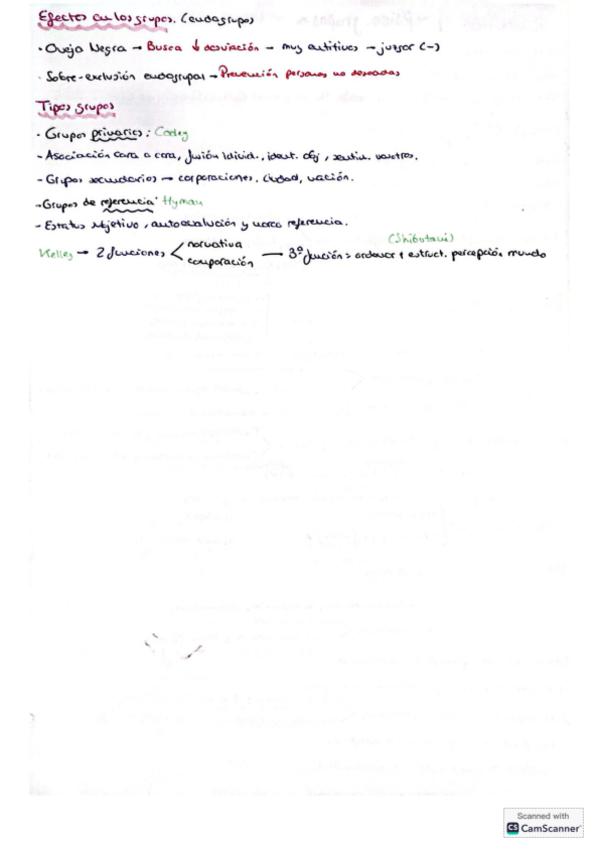 Efectos en los grupos. (endogrupo)
· Oveja Negra → Busca ↓ desviación → muy autitivos → juzgar (-)
· Sobre-exclusión endogrupal → Prevención personas no deseadas
Tipos grupos
· Grupos primarios: Cooley
- Asociación cara a cara, fusión individ., ident. obj, sentim. nosotros.
- Grupos secundarios → corporaciones, ciudad, nación.
- Grupos de referencia: Hyman
- Estatus subjetivo, autoevaluación y marco referencia.
(Shibutani)
Kelley → 2 funciones < normativa comparación — 3º función = ordenar + estruct. percepción mundo
Scanned with
CS CamScanner